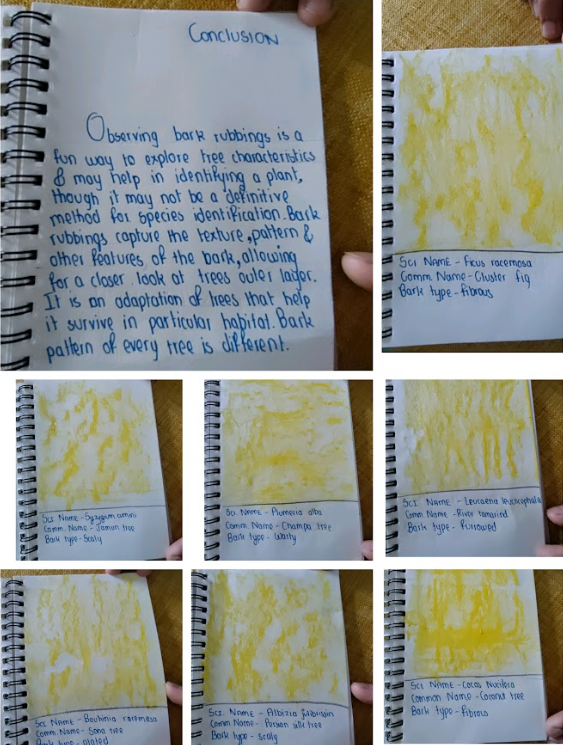 Conclusion
Observing bark rubbings is a
fun way to explore tree characteristics
& may help in identifying a plant,
though it may not be a definitive
method for species identification. Bark
rubbings capture the texture, pattern &
other features of the bark, allowing
for a closer look at trees outer layer.
It is an adaptation of trees that help
it survive in particular habitat. Bark
pattern of every tree is different.
Sci NAME - Ficus racemosa
Comm Name - Cluster fig
Bark type - Fibrous
Sci NAME - Syzygium cumini
Comm. Name - Jamun tree
Bark type - Scaly
Sci NAME - Plumeria alba
Comm. Name - Champa tree
Bark type - Warty
Sci NAME - Leucaena leucocephala
Comm Name - River tamarind
Bark type - Furrowed
Sci NAME - Bauhinia racemosa
Comm Name - Sona tree
Bark type - plated
Sci. NAME - Albizia julibrissin
Comm Name - Persian silk tree
Bark type - Scaly
Sci NAME - Cocos Nucifera
Common Name - tree
Bark type - Fibrous